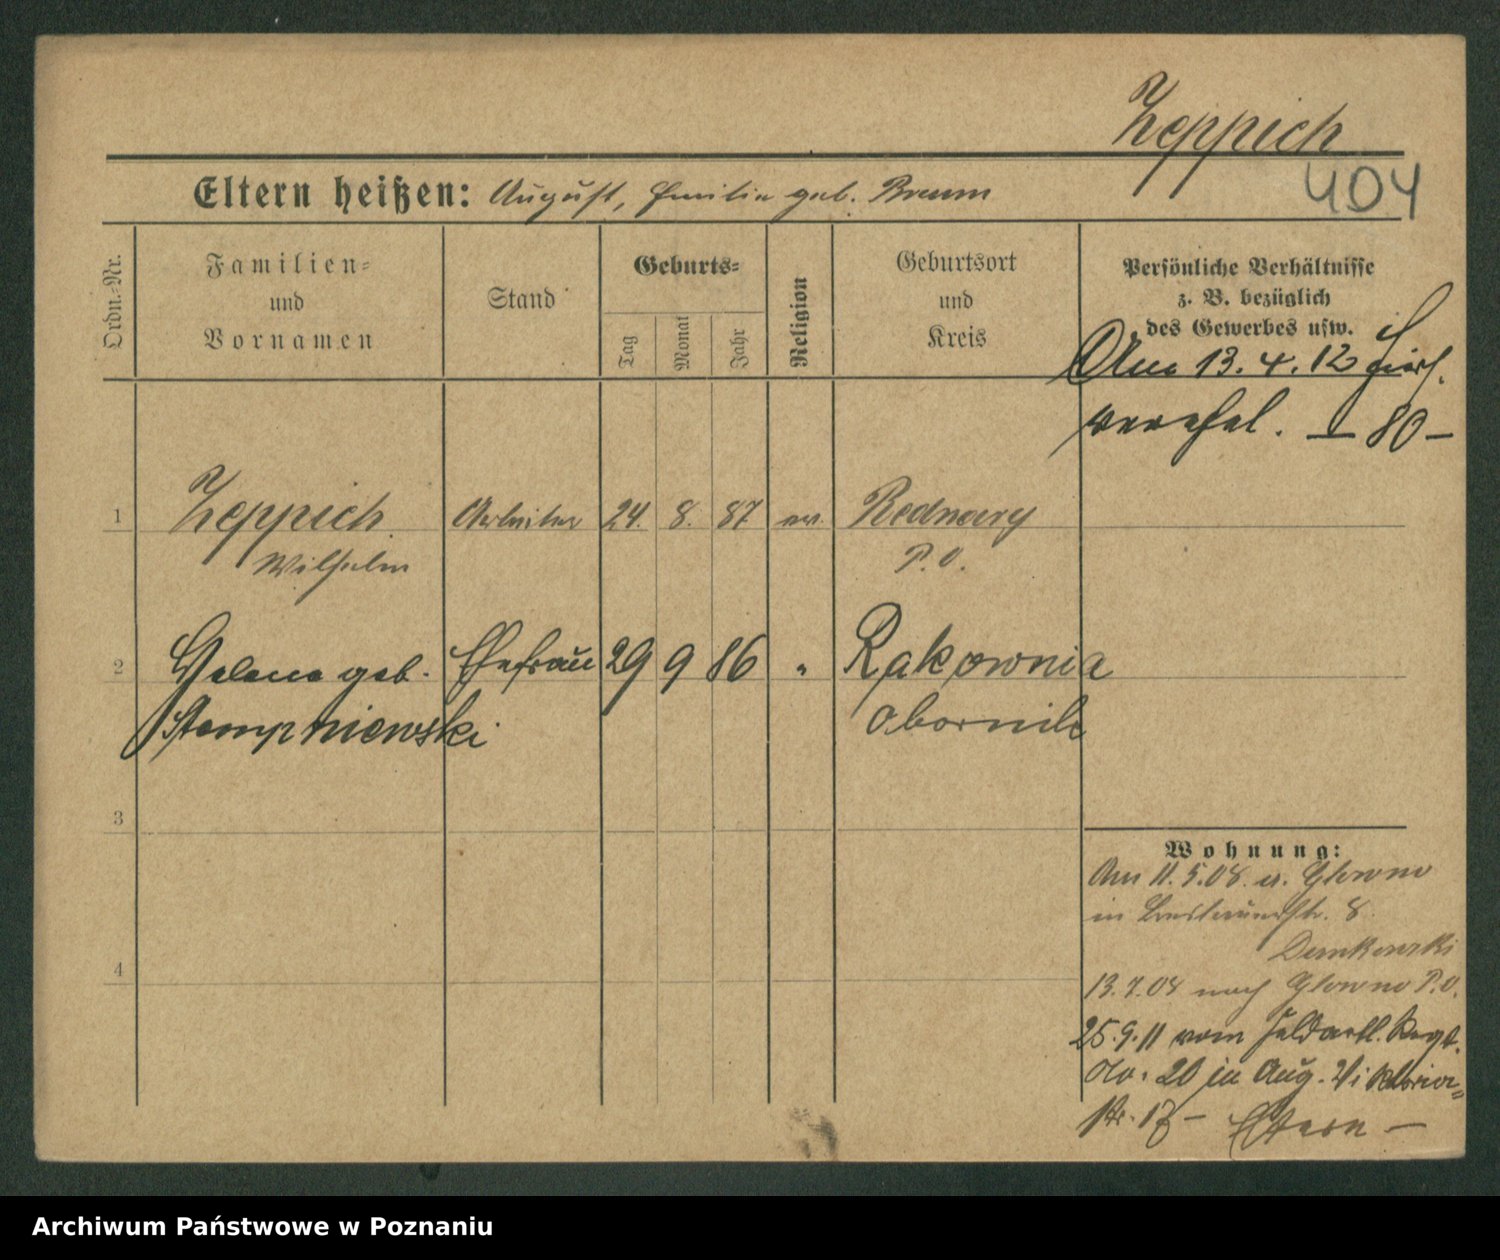 Zeppich
404
Eltern heißen: August, Emilie geb. Braum
Ordn.-Nr.
Familien-
und
Vornamen
Stand
Geburts-
Tag
Monat
Jahr
Religion
Geburtsort
und
Kreis
Persönliche Verhältnisse
z. B. bezüglich
des Gewerbes usw.
Am 13.4.12 hier
verehel. — 80 —
1 Zeppich Arbeiter 24. 8. 87 ev. Bednary
Wilhelm P.O.
2 Helene geb. Ehefrau 29 9 86 " Rakownia
Stempniewski Obornik
3
4
Wohnung:
Am 11.5.08. v. Glowno
in 8.
Damkowski
13.7.08 nach Glowno P.O.
25.9.11 vom Feldartl. Regt.
No. 20 in Aug. Viktoria-
str. 17 – Eltern –
Archiwum Państwowe w Poznaniu